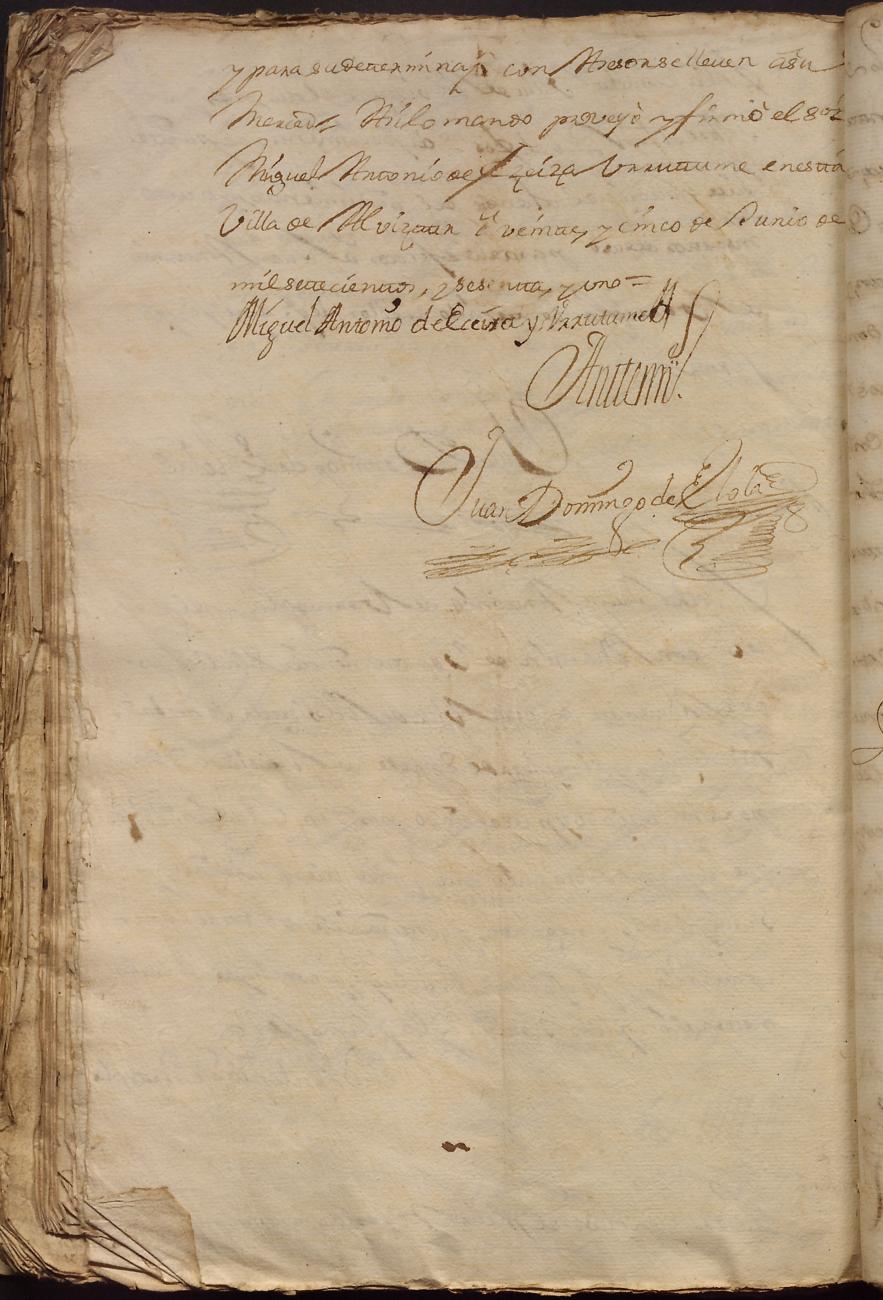 y para su determinaz.n con Asesor se lleven asu
Merced, Asi lo mando proveyo y firmó el S.or
Miguel Antonio de Eizeiza Vrrutume, en esta
Villa de Alvizttur á veinte, y cinco de Junio de
mil settecienttos, y sesentta, y uno=
Miguel Antonio de y Vrrutume
Antemi.
Juan Domingo de Elola